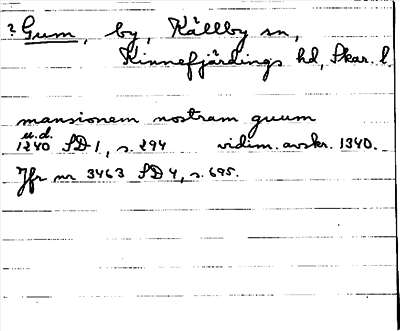 ? Gum, by, Källby sn,
Kinnefjärdings hd, Skar. l.
mansionem nostram guum
u.d.
1240 SD 1, s. 294 vidim. avskr. 1340.
Jfr nr 3463 SD 4, s. 695.